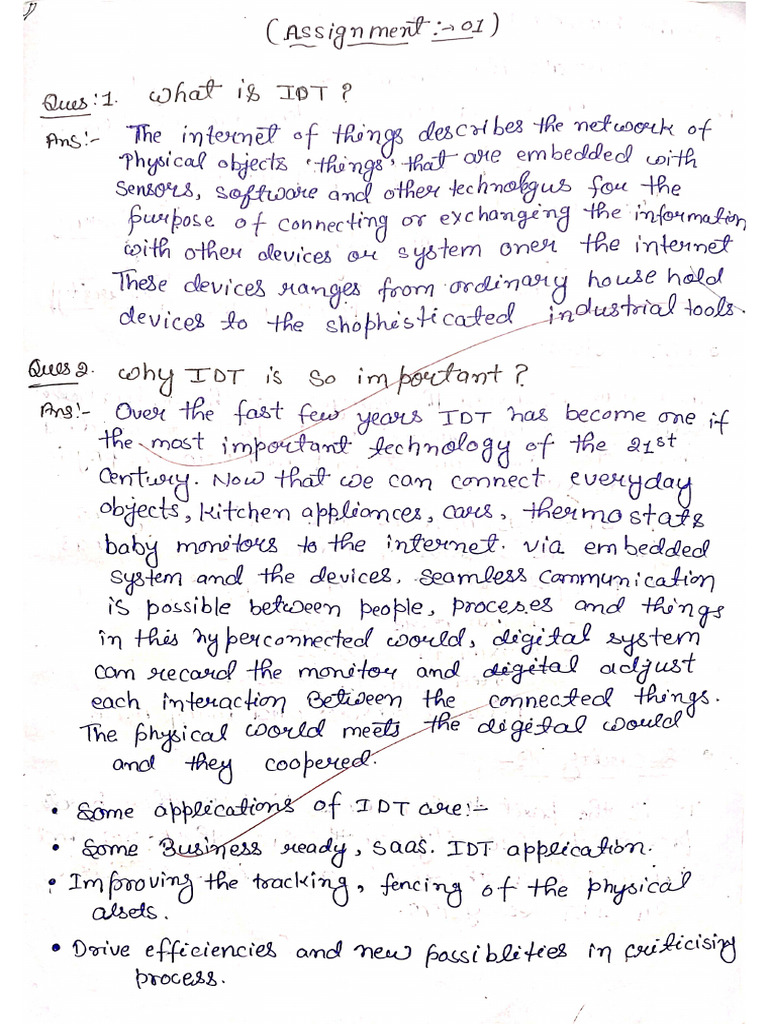 (Assignment:→01)
Ques:1. What is IDT?
Ans:- The internet of things describes the network of
Physical objects 'things' that are embedded with
sensors, software and other technologus fou the
purpose of connecting or exchanging the information
with other devices or system oner the internet
These devices ranges from ordinary house hold
devices to the shophisticated industrial tools.
Ques 2. Why IDT is so important?
Ans:- Over the fast few years IDT has become one if
the most important technology of the 21st
Century. Now that we can connect everyday
objects, kitchen appliances, cars, thermostats
baby monitors to the internet. via embedded
system and the devices, seamless communication
is possible between people, proceses and things
in this hyperconnected world, digital system
can recard the monitor and digital adjust
each interaction Between the connected things.
The physical world meets the digital would
and they coopered.
• Some applications of IDT are:-
• Some Business ready, SaaS. IDT application.
• Improving the tracking, fencing of the physical
alsets.
• Drive efficiencies and new possiblities in criticising
process.